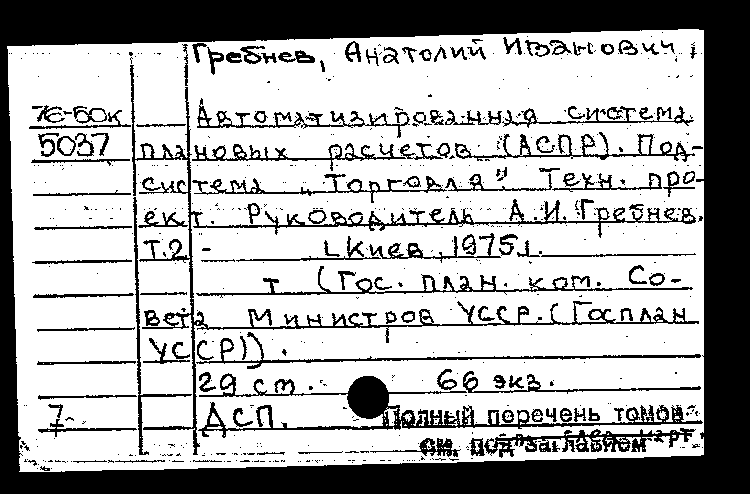 Гребнев, Анатолий Иванович,
76-50к Автоматизированная система
5037 плановых расчетов (АСПР). Под-
система „Торговля". Техн. про-
ект. Руководитель А.И. Гребнев.
Т.2 - [Киев, 1975].
т (Гос. план. ком. Со-
вета Министров УССР. (Госплан
УССР)).
29 см. 66 экз.
7 ДСП. Полный перечень томов
см. под заглавном карт.